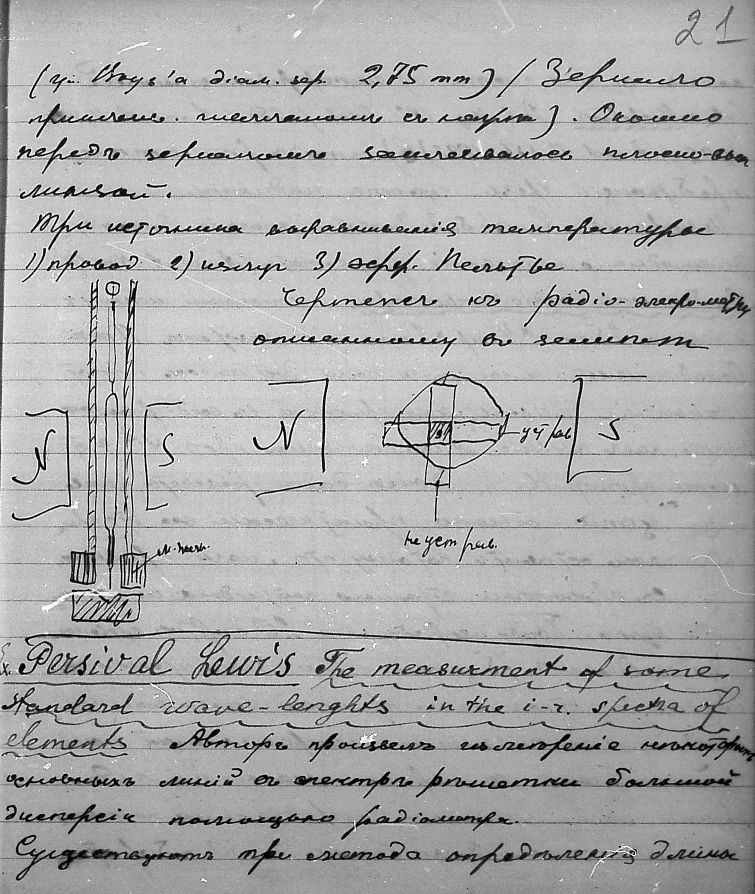 21
(у Boys'а діам. зер. 2,75 mm) (Зеркало
. Окошко
передъ зеркаломъ заклеивалось плоско-вып
линзой.
Три источника выравниванія температуры
1) провод 2) излуч 3) эфф. Пельтье
Чертежъ къ радіо-
описанному въ
N S N S
уст рав
не уст рав.
Persival Lewis The measurment of some
standard wave-lenghts in the i-r. spectra of
elements Авторъ произвелъ измѣреніе нѣкоторыхъ
основныхъ линій въ спектрѣ рѣшетки большой
дисперсіи помощью радіометра.
Существуютъ три метода опредѣленія длины